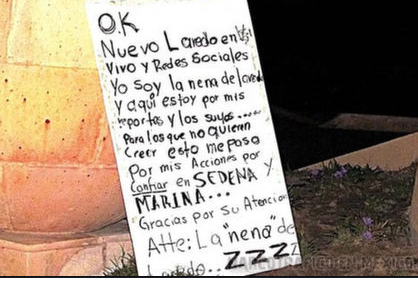 O.K
Nuevo Laredo en
Vivo y Redes Sociales
Yo soy la nena de laredo
y aquí estoy por mis
reportes y los suyos.....
Para los que no quieran
Creer esto me paso
Por mis Acciones por
Confiar en SEDENA Y
MARINA...
Gracias por su Atencion
Atte: La "nena" de
Laredo.. ZZZZ
EN MEXICO